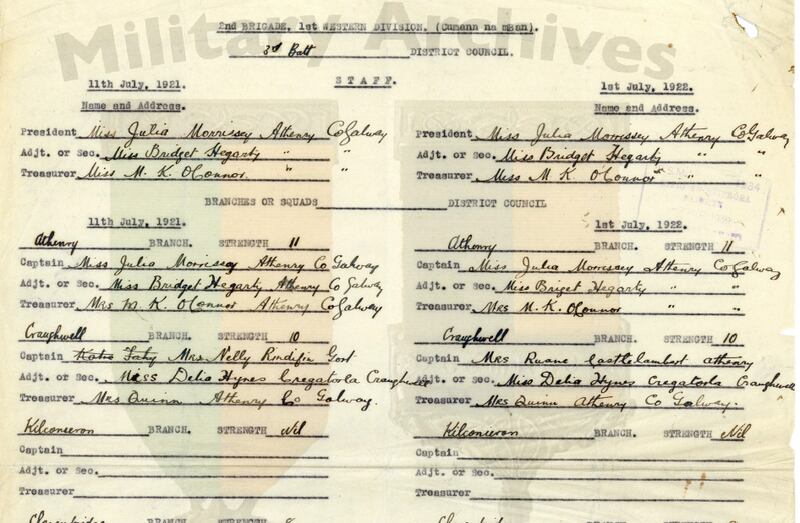 Military Archives
2nd BRIGADE, 1st WESTERN DIVISION, (Cumann na mBan).
3rd Batt DISTRICT COUNCIL.
STAFF.
11th July, 1921.
Name and Address.
President Miss Julia Morrissey Athenry Co Galway
Adjt. or Sec. Miss Bridget Hegarty " "
Treasurer Miss M. K. O'Connor. " "
1st July, 1922.
Name and Address.
President Miss Julia Morrissey Athenry Co Galway
Adjt. or Sec. Miss Bridget Hegarty " "
Treasurer Miss M K O'Connor " "
BRANCHES OR SQUADS DISTRICT COUNCIL
11th July, 1921.
Athenry BRANCH. STRENGTH 11
Captain Miss Julia Morrissey Athenry Co Galway
Adjt. or Sec. Miss Bridget Hegarty Athenry Co Galway
Treasurer Mrs M. K O'Connor Athenry Co Galway
Craughwell BRANCH. STRENGTH 10
Captain Katie Fahy Mrs Nelly Gort
Adjt. or Sec. Miss Delia Hynes Cregatorla Craughwell
Treasurer Mrs Quinn Athenry Co Galway.
Kilconieron BRANCH. STRENGTH Nil
Captain
Adjt. or Sec.
Treasurer
Clarenbridge BRANCH. STRENGTH
1st July, 1922.
Athenry BRANCH. STRENGTH 11
Captain Miss Julia Morrissey Athenry Co Galway
Adjt. or Sec. Miss Briget Hegarty " "
Treasurer Mrs M. K. O'Connor " "
Craughwell BRANCH. STRENGTH 10
Captain Mrs Ruane Castlelambert Athenry
Adjt. or Sec. Miss Delia Hynes Cregatorla Craughwell
Treasurer Mrs Quinn Athenry Co Galway.
Kilconieron BRANCH. STRENGTH Nil
Captain
Adjt. or Sec.
Treasurer
BRANCH. STRENGTH